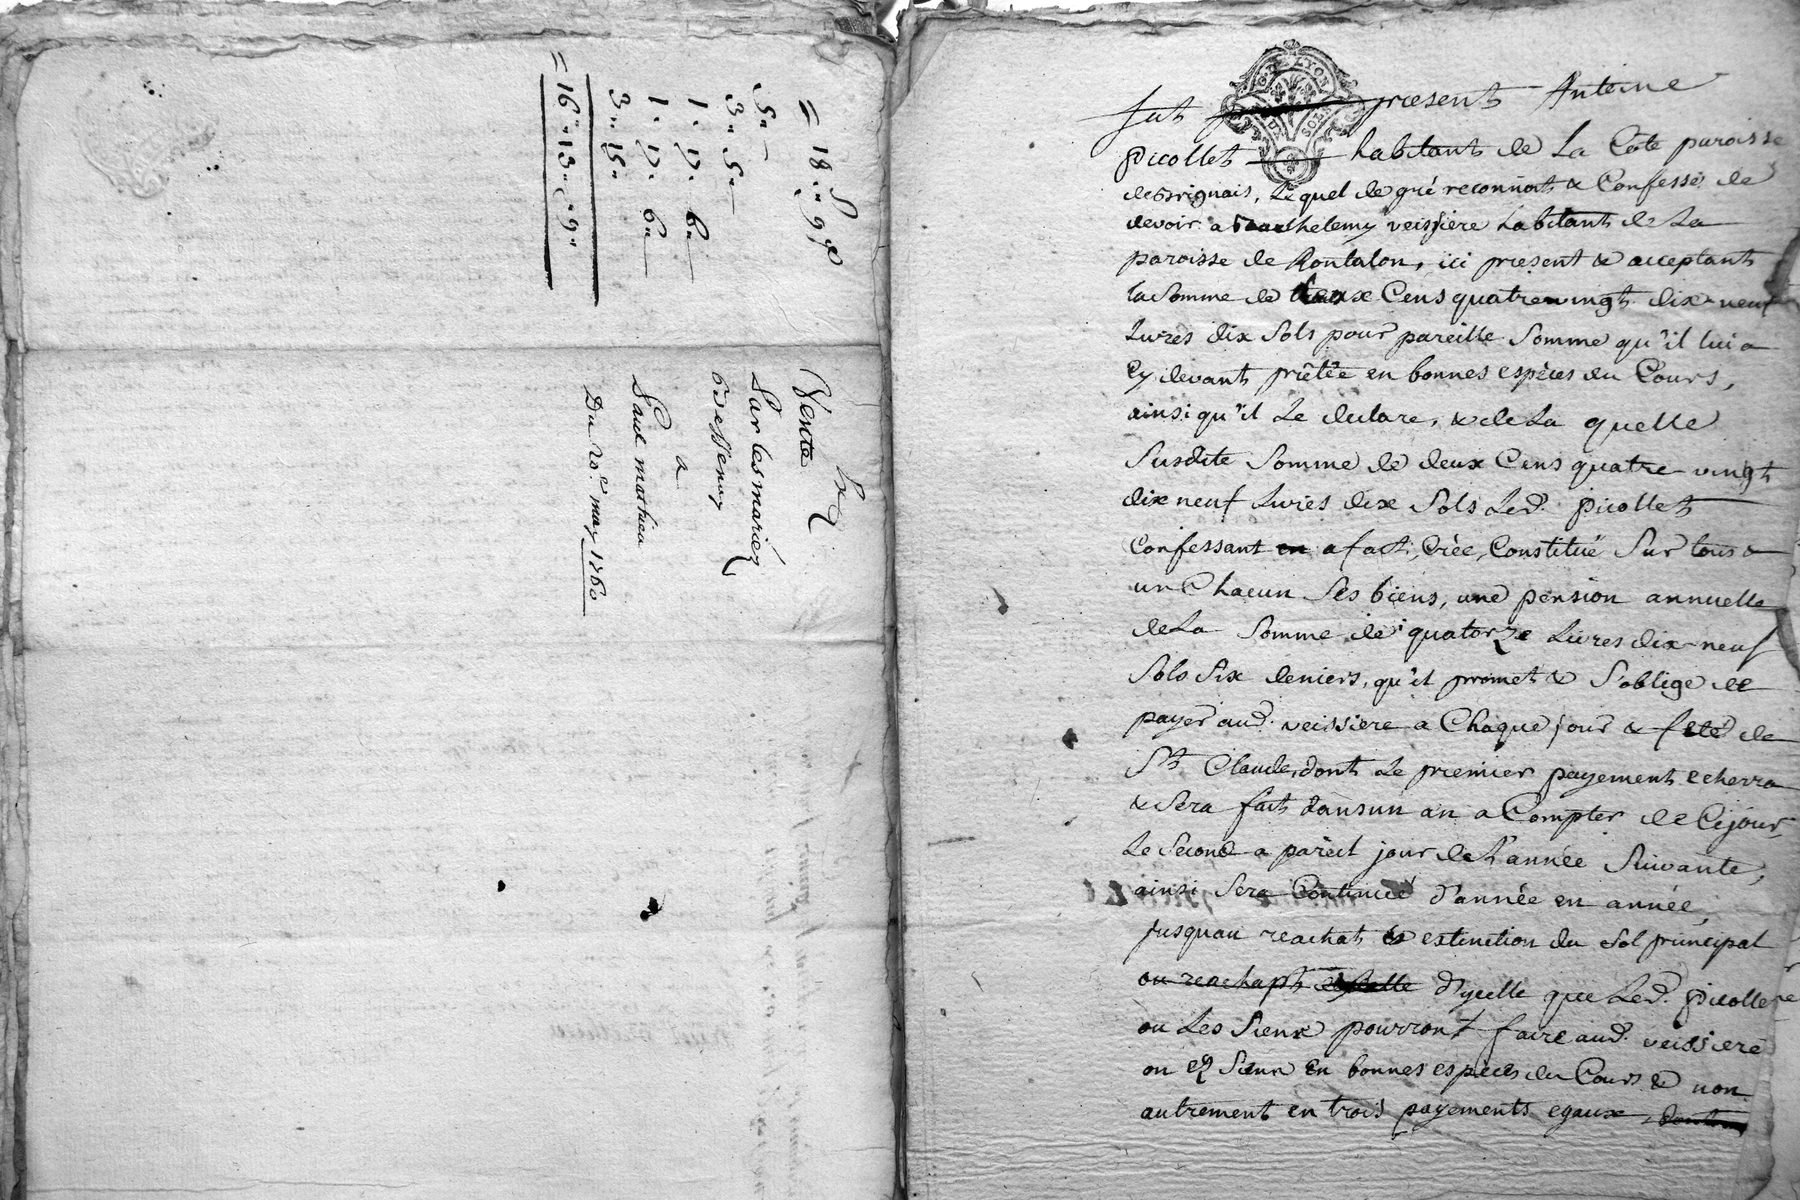 = 18. " 9
5 "
3 " 5 "
1. 17. 6 "
1. 17. 6 "
3 " 15 "
= 16 " 13 " 9 "
Vente
Par les mariez
a
Paul mathieu
Du 20.e may 1760
G. DE LYON
SOLS
fut present Antoine
picollet habitant de La Côte paroisse
de Brignais, Lequel de gré reconnoit & Confesse de
devoir a Barthelemy veissiere habitant de La
paroisse de Rontalon, ici present & acceptant
la Somme de deux Cens quatre vingt dix neuf
Livres dix Sols pour pareille Somme qu'il lui a
Cy devant prêtée en bonnes espèces du Cours,
ainsi qu'il Le declare, & de La quelle
Susdite Somme de deux Cens quatre vingt
dix neuf Livres dix Sols Led. picollet
Confessant en a fait, Crée, Constitué Sur tous &
un Chacun Ses biens, une pension annuelle
de La Somme de quatorze Livres dix neuf
Sols Six deniers, qu'il promet & S'oblige de
payer aud. veissiere a Chaque jour & fete de
St. Claude, dont Le premier payement echerra
& Sera fait dans un an a Compter de Cejour,
Le Second a pareil jour de L'année Suivante,
ainsi Sera Continué d'année en année,
jusquau reachat & extinction du Sol principal
ou reachapt d'ycelle que Led. picollet
ou Les Siens pourront faire aud. veissiere
ou es Siens En bonnes espèces du Cours & non
autrement en trois payements egaux, dont